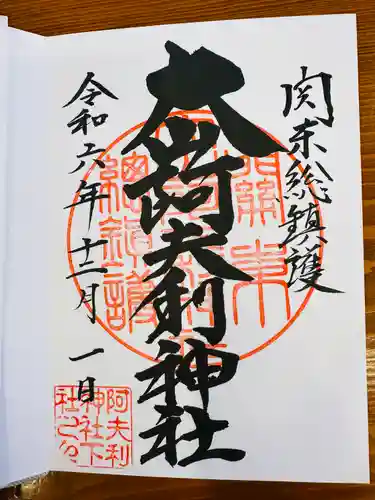 関東総鎮護
大山阿夫利神社
令和六年十二月一日
關東
總鎮護
阿夫利
神社下
社之印